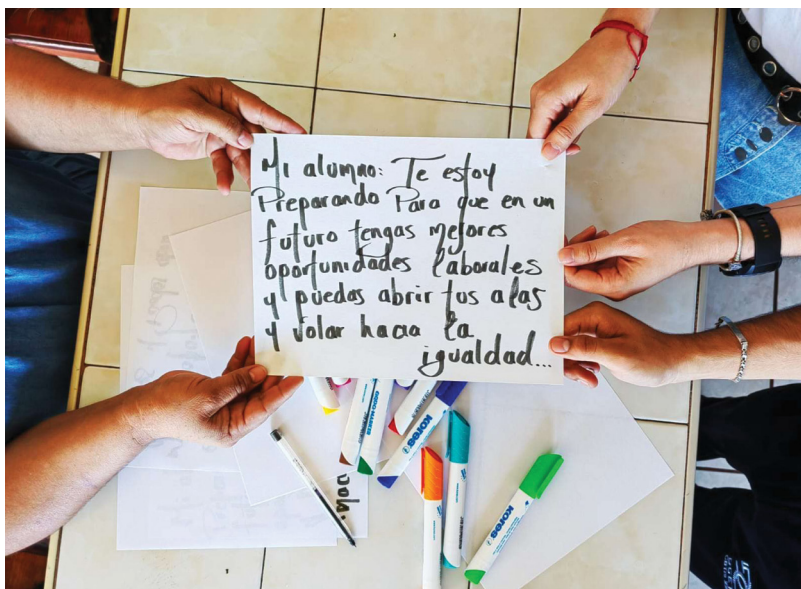 Mi alumno: Te estoy
Preparando Para que en un
futuro tengas mejores
oportunidades laborales
y puedas abrir tus alas
y volar hacia la
igualdad...
Kores
Kores